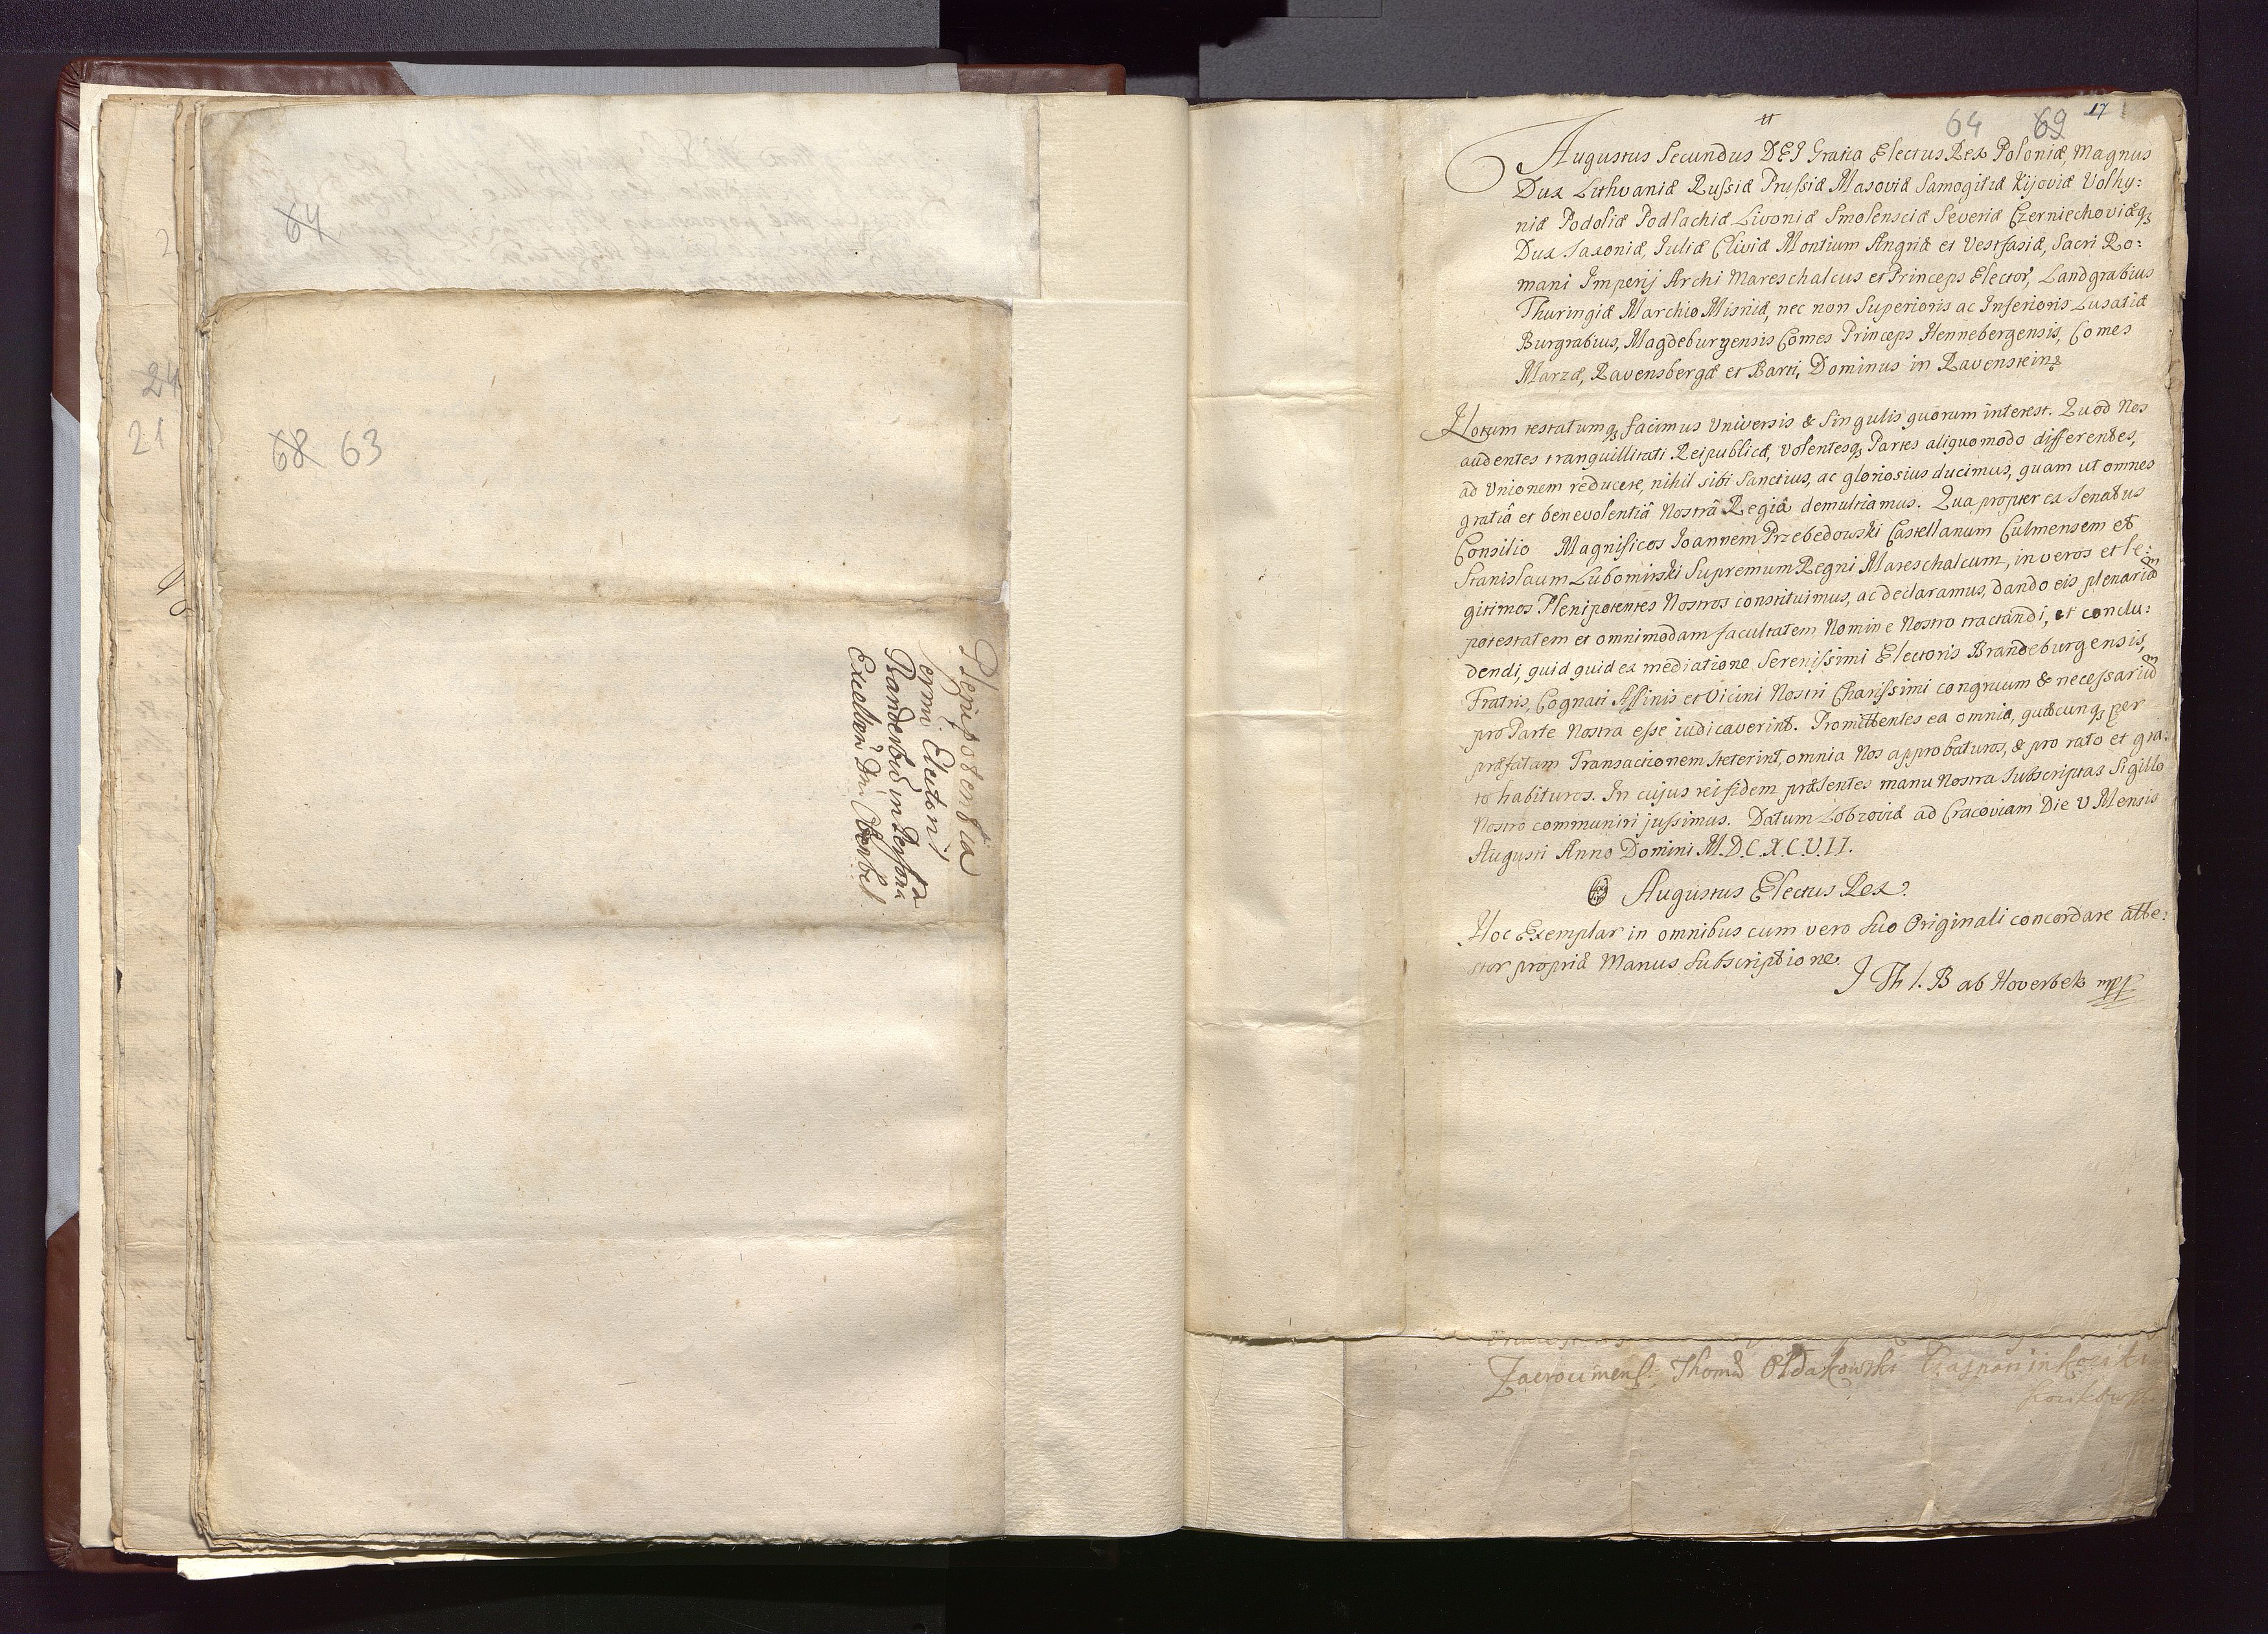 64
68 63
24
21
Plenipotentia
Sermi Electoris
Brandeb: in Persona
Excellen: Dni Overbek
64 69 17
Augustus Secundus DEI Gratia Electus Rex Poloniæ, Magnus
Dux Lithvaniæ Russiæ Prussiæ Masoviæ Samogitiæ Kijoviæ Volhy:
niæ Podoliæ Podlachiæ Livoniæ Smolensciæ Severiæ Czerniechoviæq3
Dux Saxoniæ, Juliæ Cliviæ Montium Angriæ et Vestfasiæ, Sacri Ro:
mani Imperij Archi Mareschalcus et Princeps Elector, Landgrabius
Thuringiæ Marchio Misniæ, nec non Superioris ac Inferioris Lusatiæ
Burgrabius, Magdeburgensis Comes Princeps Hennebergensis, Comes
Marzæ, Ravensbergæ et Barti, Dominus in Ravenstein
Notum testatumq3 facimus Universis & Singulis quorum interest. Quod Nos
audentes tranquillitati Reipublicæ, volentesq3 Partes aliquomodo differentes,
ad Unionem reducere, nihil sibi Sanctius, ac gloriosius ducimus, quam ut omnes
gratiâ et benevolentiâ Nostrâ Regiâ demultiamus. Qua propter ex Senatus
Consilio Magnificos Joannem Przebedowski Castellanum Culmensem et
Stanislaum Lubomirski Supremum Regni Mareschalcum, in veros et le:
gitimos Plenipotentes Nostros constituimus, ac declaramus, dando eis plenariam
potestatem et omnimodam facultatem Nomine Nostro tractandi, et conclu:
dendi, quid quid ex mediatione Serenissimi Electoris Brandeburgensis,
Fratris, Cognati Affinis et Vicini Nostri Charissimi congruum & necessarium
pro Parte Nostra esse iudicaverint. Promittentes ea omnia, quæcunq3 per
præfatam Transactionem steterint, omnia Nos approbaturos, & pro rato et gra:
to habituros. In cujus rei fidem præsentes manu Nostra Subscriptas Sigillo
Nostro communiri jussimus. Datum Lobzoviæ ad Cracoviam Die V Mensis
Augusti Anno Domini M.D.C.X.C.V.I.I.
Augustus Electus Rex.
Hoc Exemplar in omnibus cum vero Suo Originali concordare atte:
stor propriâ Manus Subscriptione.
J Th l. B ab Hoverbek mpp
Zacrocimens: Thomæ Oldakowski